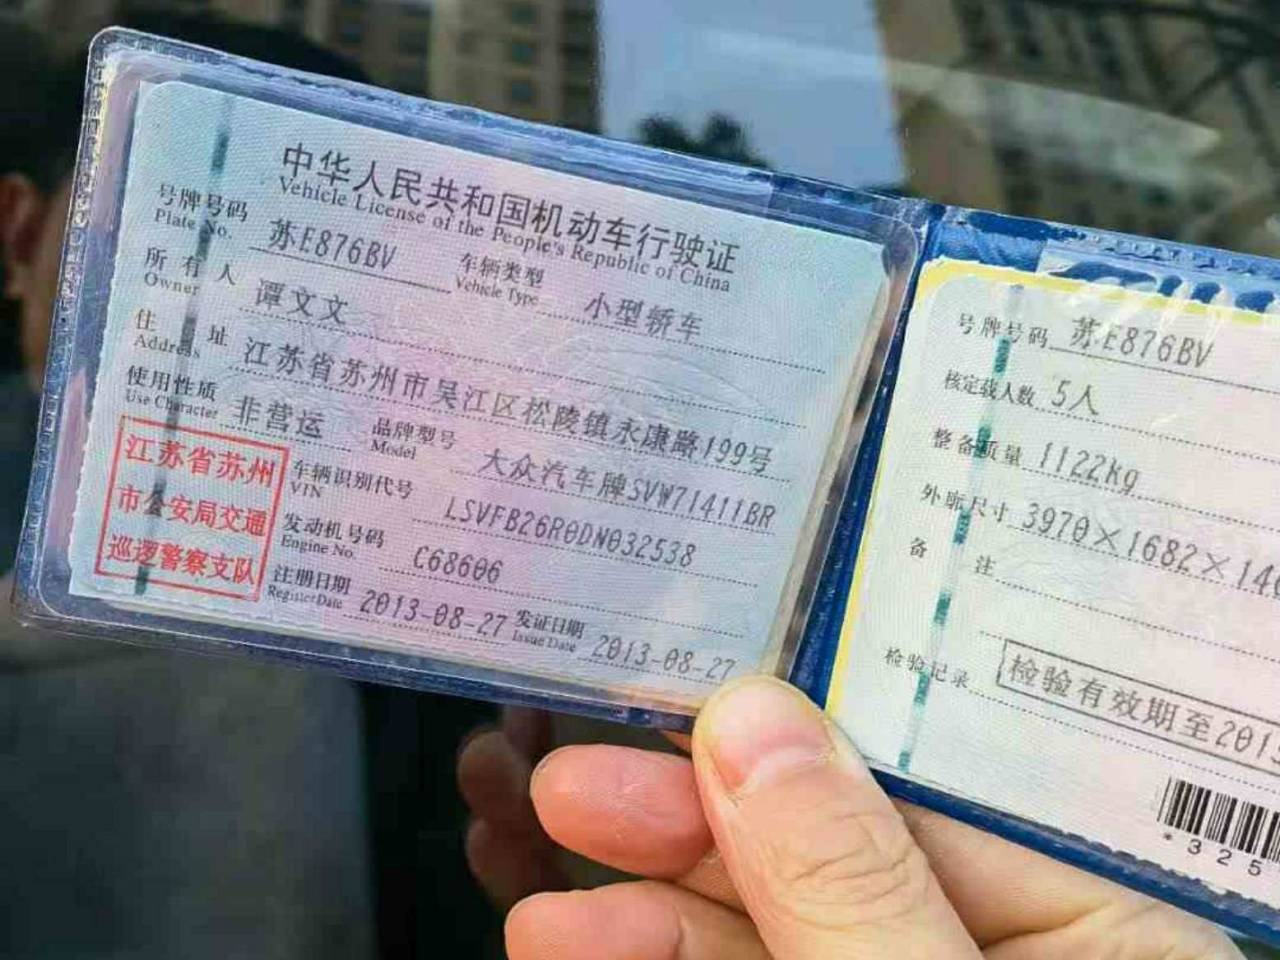 中华人民共和国机动车行驶证
Vehicle License of the People's Republic of China
号牌号码 苏E876BV 车辆类型 小型轿车
Plate No. Vehicle Type
所有人 谭文文
Owner
住址 江苏省苏州市吴江区松陵镇永康路199号
Address
使用性质 非营运 品牌型号 大众汽车牌SVW71411BR
Use Character Model
江苏省苏州
市公安局交通
巡逻警察支队
车辆识别代号 LSVFB26R0DN032538
VIN
发动机号码 C68606
Engine No.
注册日期 2013-08-27 发证日期 2013-08-27
Register Date Issue Date
号牌号码 苏E876BV
核定载人数 5人
整备质量 1122Kg
外廓尺寸 3970×1682×14
备注
检验记录 检验有效期至201
*325